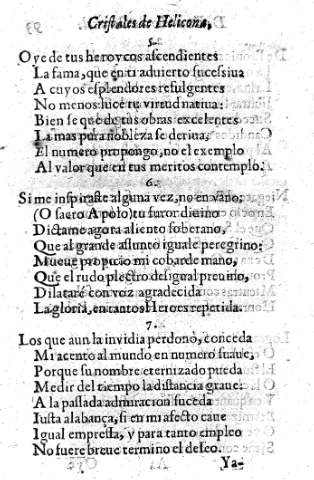 Cristales de Helicona,
5.
Oye de tus heroycos ascendientes
La fama, que en ti aduierto sucessiua
A cuyos esplendores refulgentes
No menos luce tu virtud natiua:
Bien se que de tus obras excelentes
La mas pura nobleza se deriua,
El numero propongo, no el exemplo
Al valor que en tus meritos contemplo.
6.
Si me inspiraste alguna vez, no en vano,
(O sacro Apolo) tu furor diuino
Dictame agora aliento soberano,
Que al grande assunto iguale peregrino:
Mueue propicio mi cobarde mano,
Que el rudo plectro desigual preuino,
Dilataré con voz agradecida
La gloria, en tantos Heroes repetida.
7.
Los que aun la inuidia perdonò, conceda
Mi acento al mundo en numero suaue,
Porque su nombre eternizado pueda
Medir del tiempo la distancia graue:
A la passada admiracion suceda
Iusta alabança, si en mi afecto caue
Igual empressa, y para tanto empleo
No fuere breue termino el deseo.
Ya-